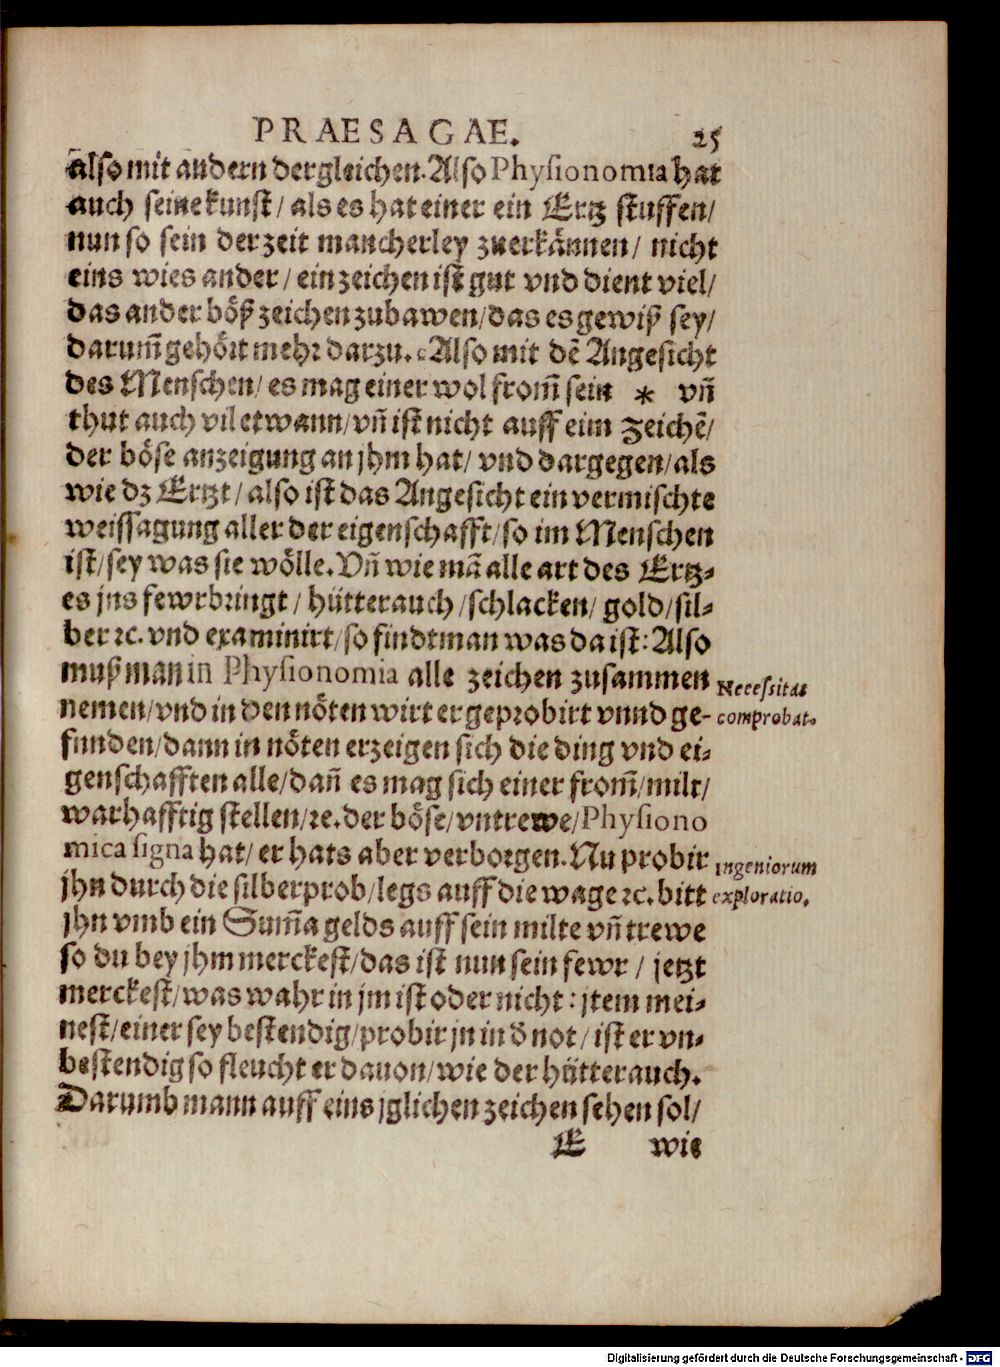 PRAESAGAE. 25
also mit andern dergleichen. Also Physionomia hat
auch seine kunst / als es hat einer ein Ertz stuffen/
nun so sein derzeit mancherley zuerkännen / nicht
eins wies ander / ein zeichen ist gut vnd dient viel/
das ander böß zeichen zubawen/das es gewiß sey/
darum̃ gehört mehr darzu. Also mit dē Angesicht
des Menschen/ es mag einer wol from̃ sein * vñ
thut auch vil etwann/vñ ist nicht auff eim zeichē/
der böse anzeigung an jhm hat/ vnd dargegen/als
wie dz Ertzt / also ist das Angesicht ein vermischte
weissagung aller der eigenschafft/so im Menschen
ist/sey was sie wölle. Vñ wie mā alle art des Ertz⸗
es jns fewr bringt / hütterauch /schlacken/ gold/sil⸗
ber ꝛc. vnd examinirt/so findt man was da ist: Also
muß man in Physionomia alle zeichen zusammen
Necessitas
nemen/vnd in den nöten wirt er geprobirt vnnd ge-
comprobat.
funden/dann in nöten erzeigen sich die ding vnd ei⸗
genschafften alle/dañ es mag sich einer from̃/milt/
warhafftig stellen/ꝛc. der böse/vntrewe/Physiono
mica signa hat/ er hats aber verborgen. Nu probir
Ingeniorum
jhn durch die silberprob/legs auff die wage ꝛc. bitt
exploratio.
jhn vmb ein Sum̃a gelds auff sein milte vñ trewe
so du bey jhm merckest/das ist nun sein fewr / jetzt
merckest/was wahr in jm ist oder nicht : jtem mei⸗
nest/einer sey bestendig/probir jn in d̄ not / ist er vn⸗
bestendig so fleucht er dauon/wie der hütterauch.
Darumb mann auff eins jglichen zeichen sehen sol/
E wie
Digitalisierung gefördert durch die Deutsche Forschungsgemeinschaft - DFG